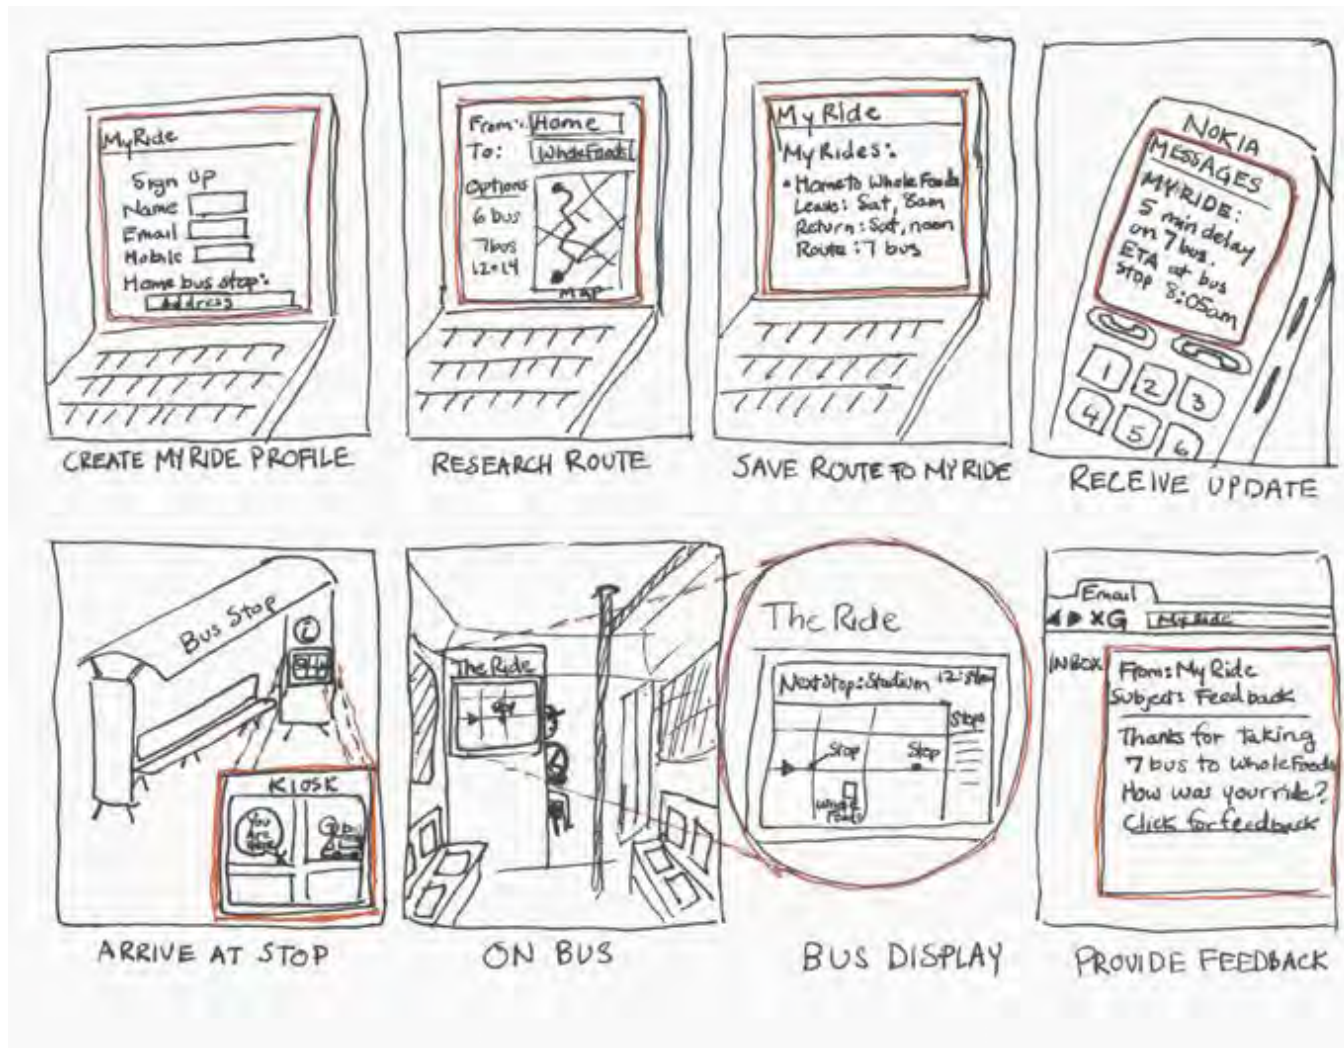 MyRide
Sign up
Name
Email
Mobile
Home bus stop:
Address
CREATE MYRIDE PROFILE
From: Home
To: Whole Foods
Options
6 bus
7 bus
12+14
MAP
RESEARCH ROUTE
My Ride
My Rides:
• Home to Whole Foods
Leave: Sat, 8am
Return: Sat, noon
Route: 7 bus
SAVE ROUTE TO MY RIDE
NOKIA
MESSAGES
MY RIDE:
5 min delay
on 7 bus.
ETA at bus
stop 8:05am
1 2 3
4 5 6
RECEIVE UPDATE
Bus Stop
i
KIOSK
You
Are
Here
ARRIVE AT STOP
The Ride
ON BUS
The Ride
Next Stop: Stadium
Stops
Stop Stop
Whole
Foods
BUS DISPLAY
Email
XG My Ride
INBOX
From: My Ride
Subject: Feedback
Thanks for taking
7 bus to Whole Foods
How was your ride?
Click for feedback
PROVIDE FEEDBACK